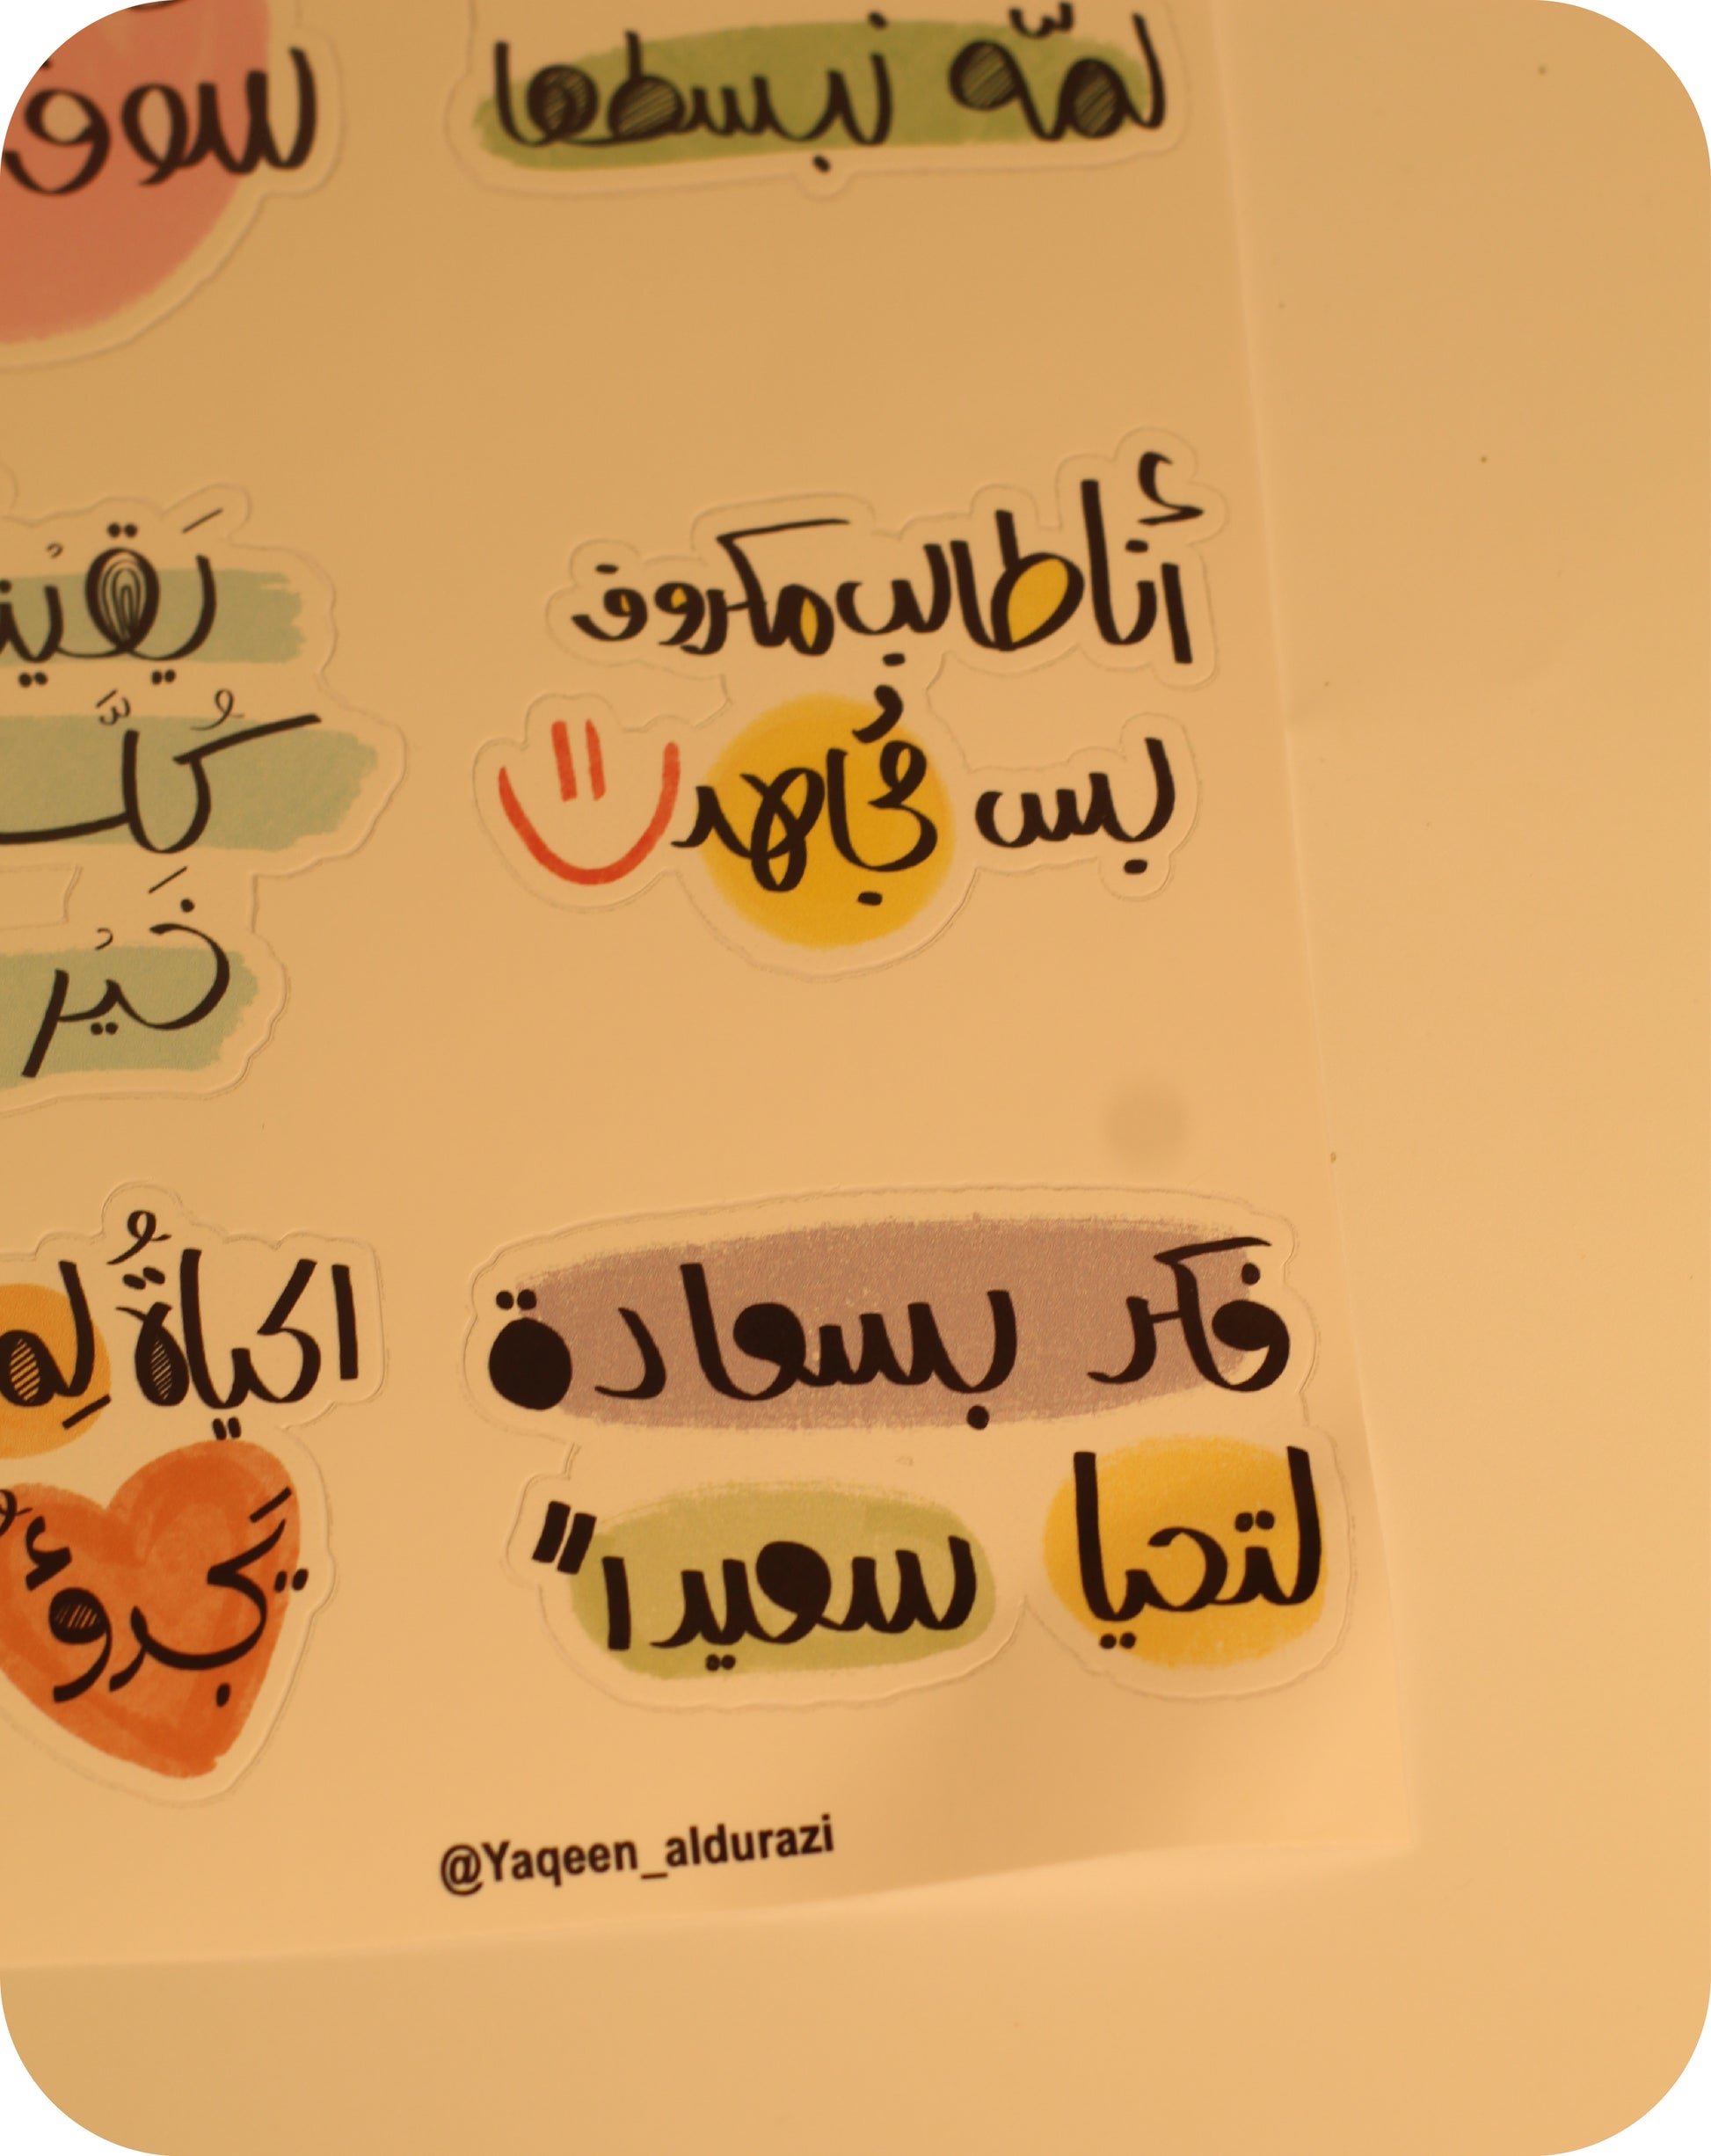 لمّه نبسطها
سوف
أنا طالب مكروف
بس مُجاهد
كُلَّ
خَيْر
فكر بسعادة
لتحيا سعيداً
الحياةُ
يَجرؤُ
@Yaqeen_aldurazi